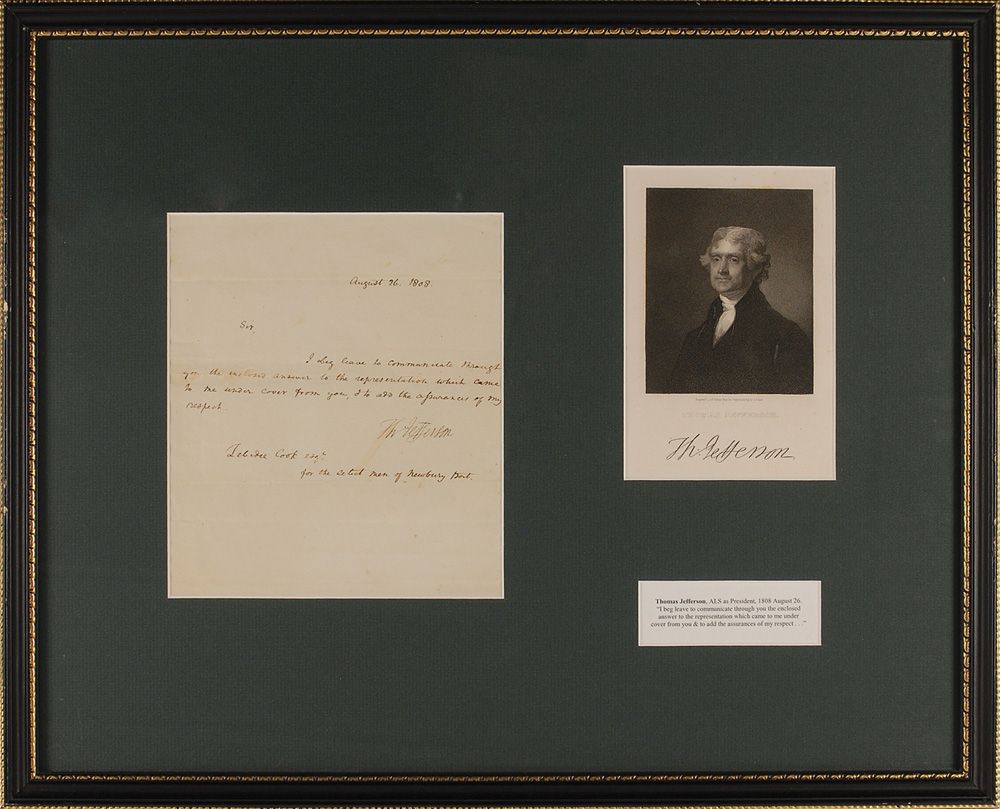 August 26. 1808.
Sir,
I beg leave to communicate through
you the inclosed answer to the representation which came
to me under cover from you, & to add the assurances of my
respect.
Th Jefferson
Cook esqr
for the select men of Newbury Port.
THOMAS JEFFERSON.
Th Jefferson
Thomas Jefferson, ALS as President, 1808 August 26.
"I beg leave to communicate through you the enclosed
answer to the representation which came to me under
cover from you & to add the assurances of my respect . . ."